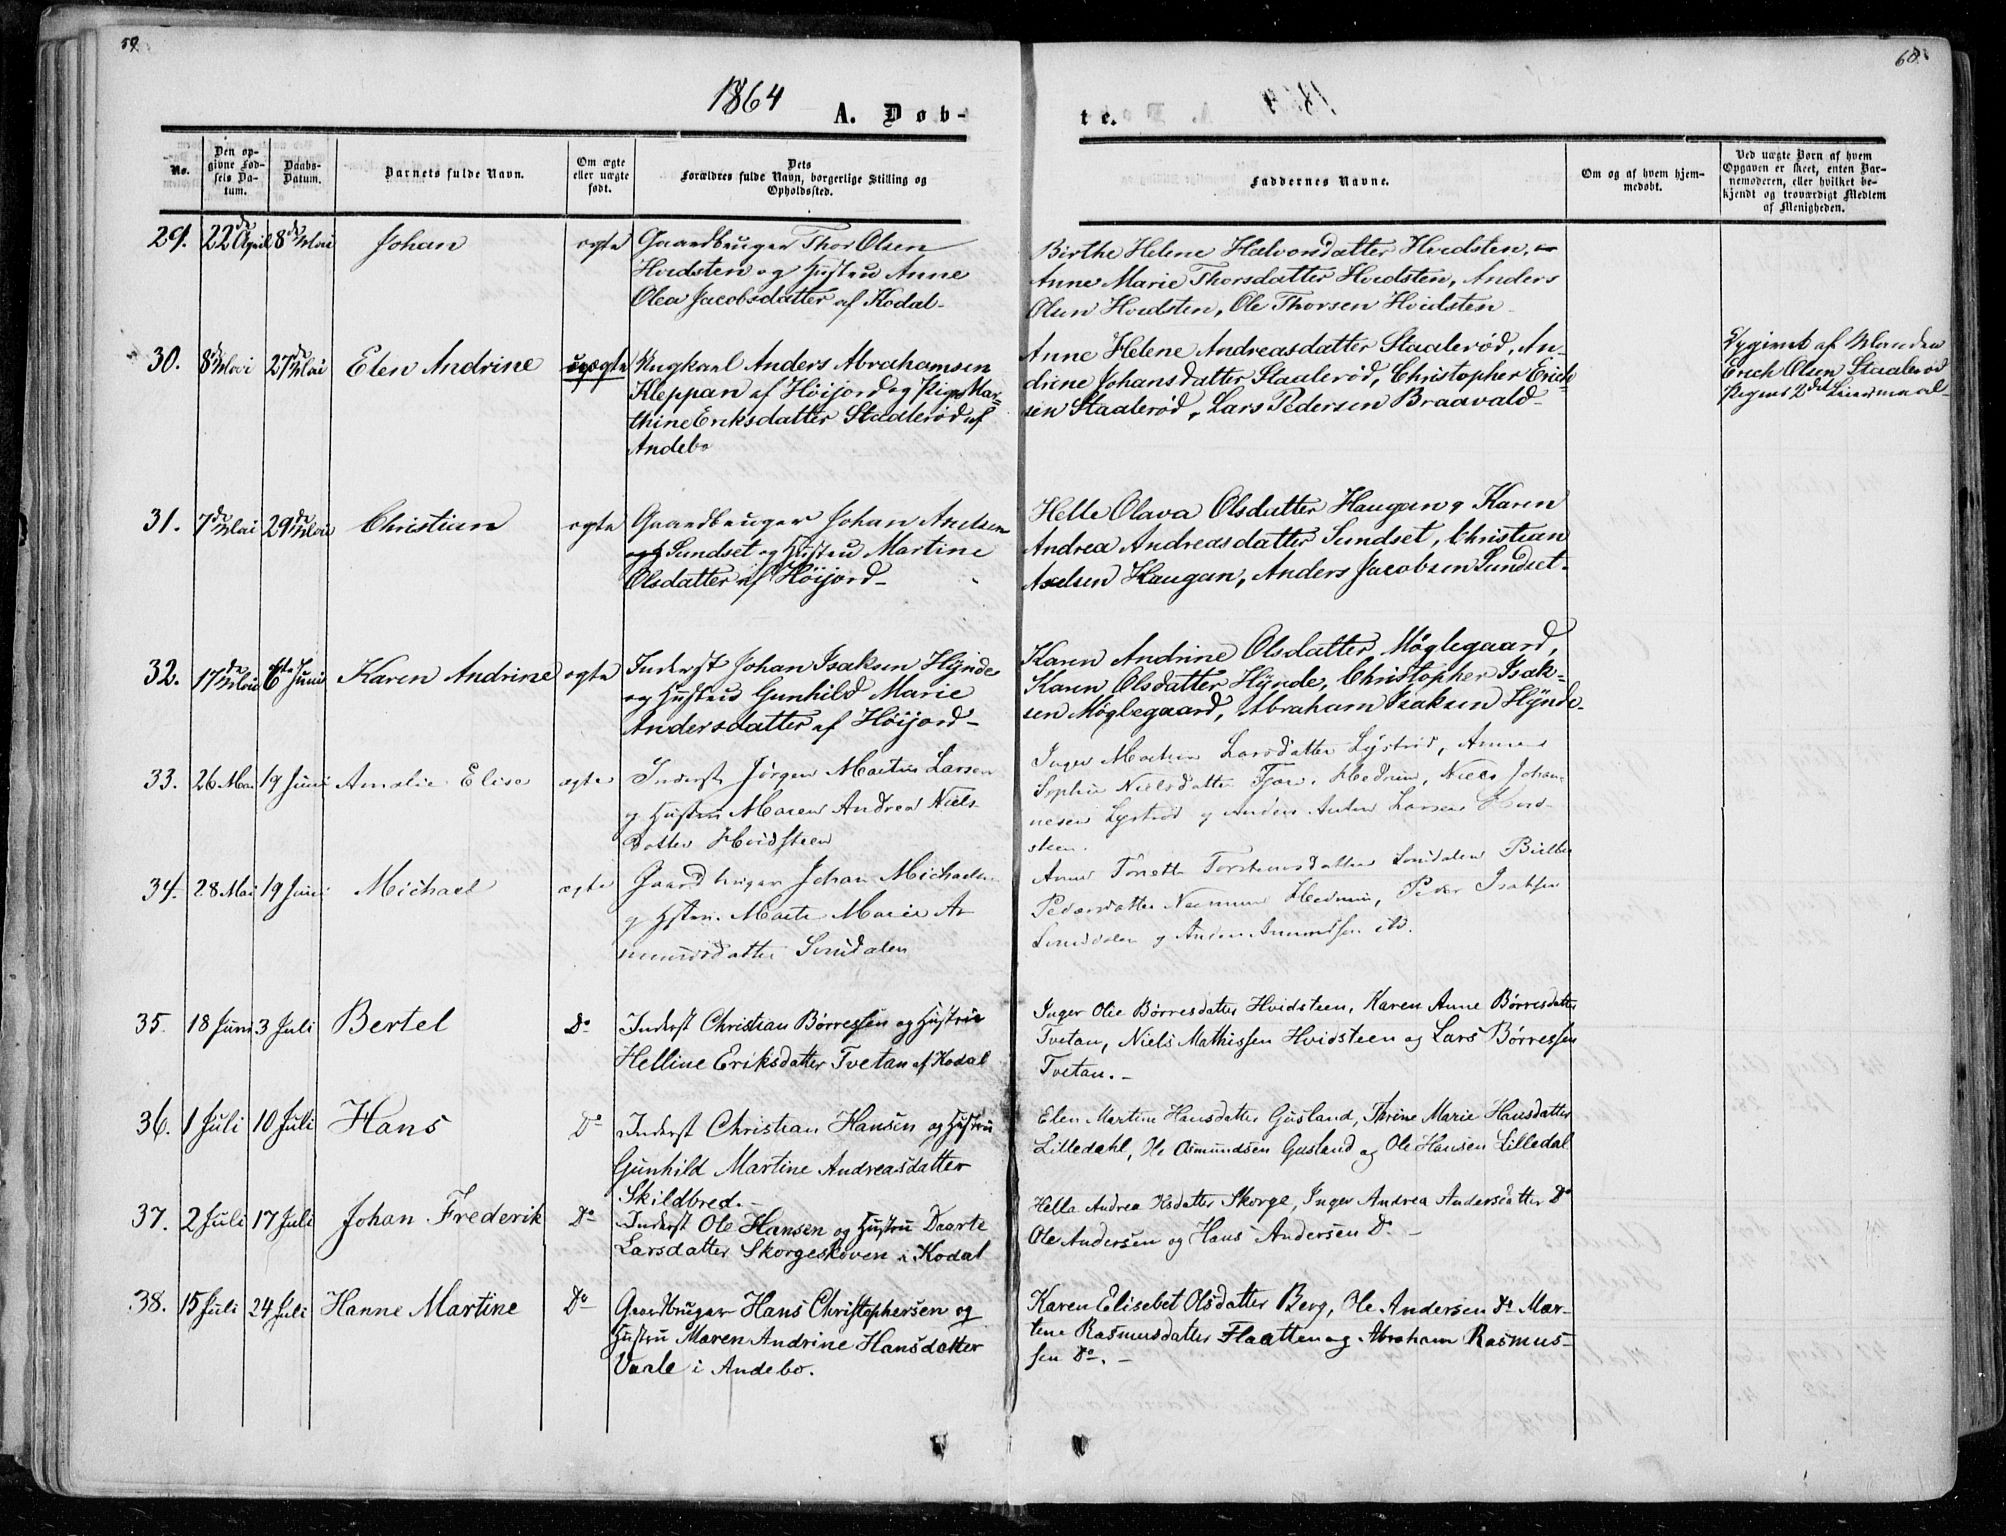 59.
60.
1864
A. Døb-
te.
No.
Den op-
givne Fød-
sels Da-
tum.
Daabs-
Datum.
Barnets fulde Navn.
Om ægte
eller uægte
født.
Dets
Forældres fulde Navn, borgerlige Stilling og
Opholdssted.
Faddernes Navne.
Om og af hvem hjem-
medøbt.
Ved uægte Børn af hvem
Opgaven er skeet, enten Bar-
nemoderen, eller hvilket be-
kjendt og troværdigt Medlem
af Menigheden.
29. 22de April 8de Mai Johan ægte Gaardbruger Thor Olsen
Hvidsten og Hustru Anne
Olea Jacobsdatter af Kodal-
Birthe Helene Halvorsdatter Hvidsten,
Anne Marie Thorsdatter Hvidsten, Anders
Olsen Hvidsten, Ole Thorsen Hvidsten
30. 8de Mai 27de Mai Elen Andrine uægte Ungkarl Anders Abrahamsen
Kleppan af Höijord og Pige Mar-
thine Eriksdatter Staalerød af
Andebo
Anne Helene Andreasdatter Staalerød, An-
drine Johansdatter Staalerød, Christopher Erick-
sen Staalerød, Lars Pedersen Braavald-
af Manden
Erich Olsen Staalerød
Pigens 2det Leiermaal
31. 7de Mai 29de Mai Christian ægte Gaardbruger Johan Axelsen
Sundset og Hustru Martine
Olsdatter af Höijord-
Helle Olava Olsdatter Haugan, Karen
Andrea Andreasdatter Sundset, Christian
Axelsen Haugan, Anders Jacobsen Sundset-
32. 17de Mai 6te Juni Karen Andrine ægte Inderst Johan Isaksen Hÿnde
og Hustru Gunhild Marie
Andersdatter af Höijord-
Karen Andrine Olsdatter Møglegaard,
Karen Olsdatter Hÿnde, Christopher Isak-
sen Møglegaard, Abraham Isaksen Hÿnde-
33. 26 Mai 19 Juni Amalie Elise ægte Inderst Jørgen Martin Larsen
og Hustru Maren Andrea Niels-
datter Hvidsteen
Inger Larsdatter Anne
Sophie Nielsdatter Hedrum, Niels Johan-
nesen og Anders Anton Larsen Hvid-
steen.
34. 28 Mai 19 Juni Michael ægte Gaardbruger Johan Michaelsen
og Hstru. Marte Marie A
mundsdatter
Anne Torstensdatter
Pedersdatter Hedrum, Peder Isaksen
og Anders Amundsen ibd.
35. 18 Juni 3 Juli Bertel Do Inderst Christian Børressen og Hustrue
Helline Eriksdatter Tvetan af Kodal
Inger Olie Børresdatter Hvidsteen, Karen Anne Børresdatter
Tvetan, Niels Mathissen Hvidsteen og Lars Børressen
Tvetan.-
36. 1 Juli 10 Juli Hans Do Inderst Christian Hansen og Hustru
Gunhild Martine Andreasdatter
Skildbred.-
Elen Martine Hansdatter Gusland, Thrine Marie Hansdatter
Lilledahl, H. Asmundsen Gusland og Ole Hansen Lilledal
37. 2 Juli 17 Juli Johan Frederik Do Inderst Ole Hansen og Hustru Daarte
Larsdatter Skorgeskoven i Kodal
Hella Andrea Skorge, Inger Andrea Andersdatter Do
Ole Andersen og Hans Andersen Do. -
38. 15 Juli 24 Juli Hanne Martine Do Gaardbruger Hans Christophersen og
Hustru Maren Andrine Hansdatter
Vaale i Andebo.
Karen Elisebet Olsdatter Berg, Ole Andersen Do Mar-
tene Rasmusdatter Flaatten og Abraham Rasmus-
sen Do. -